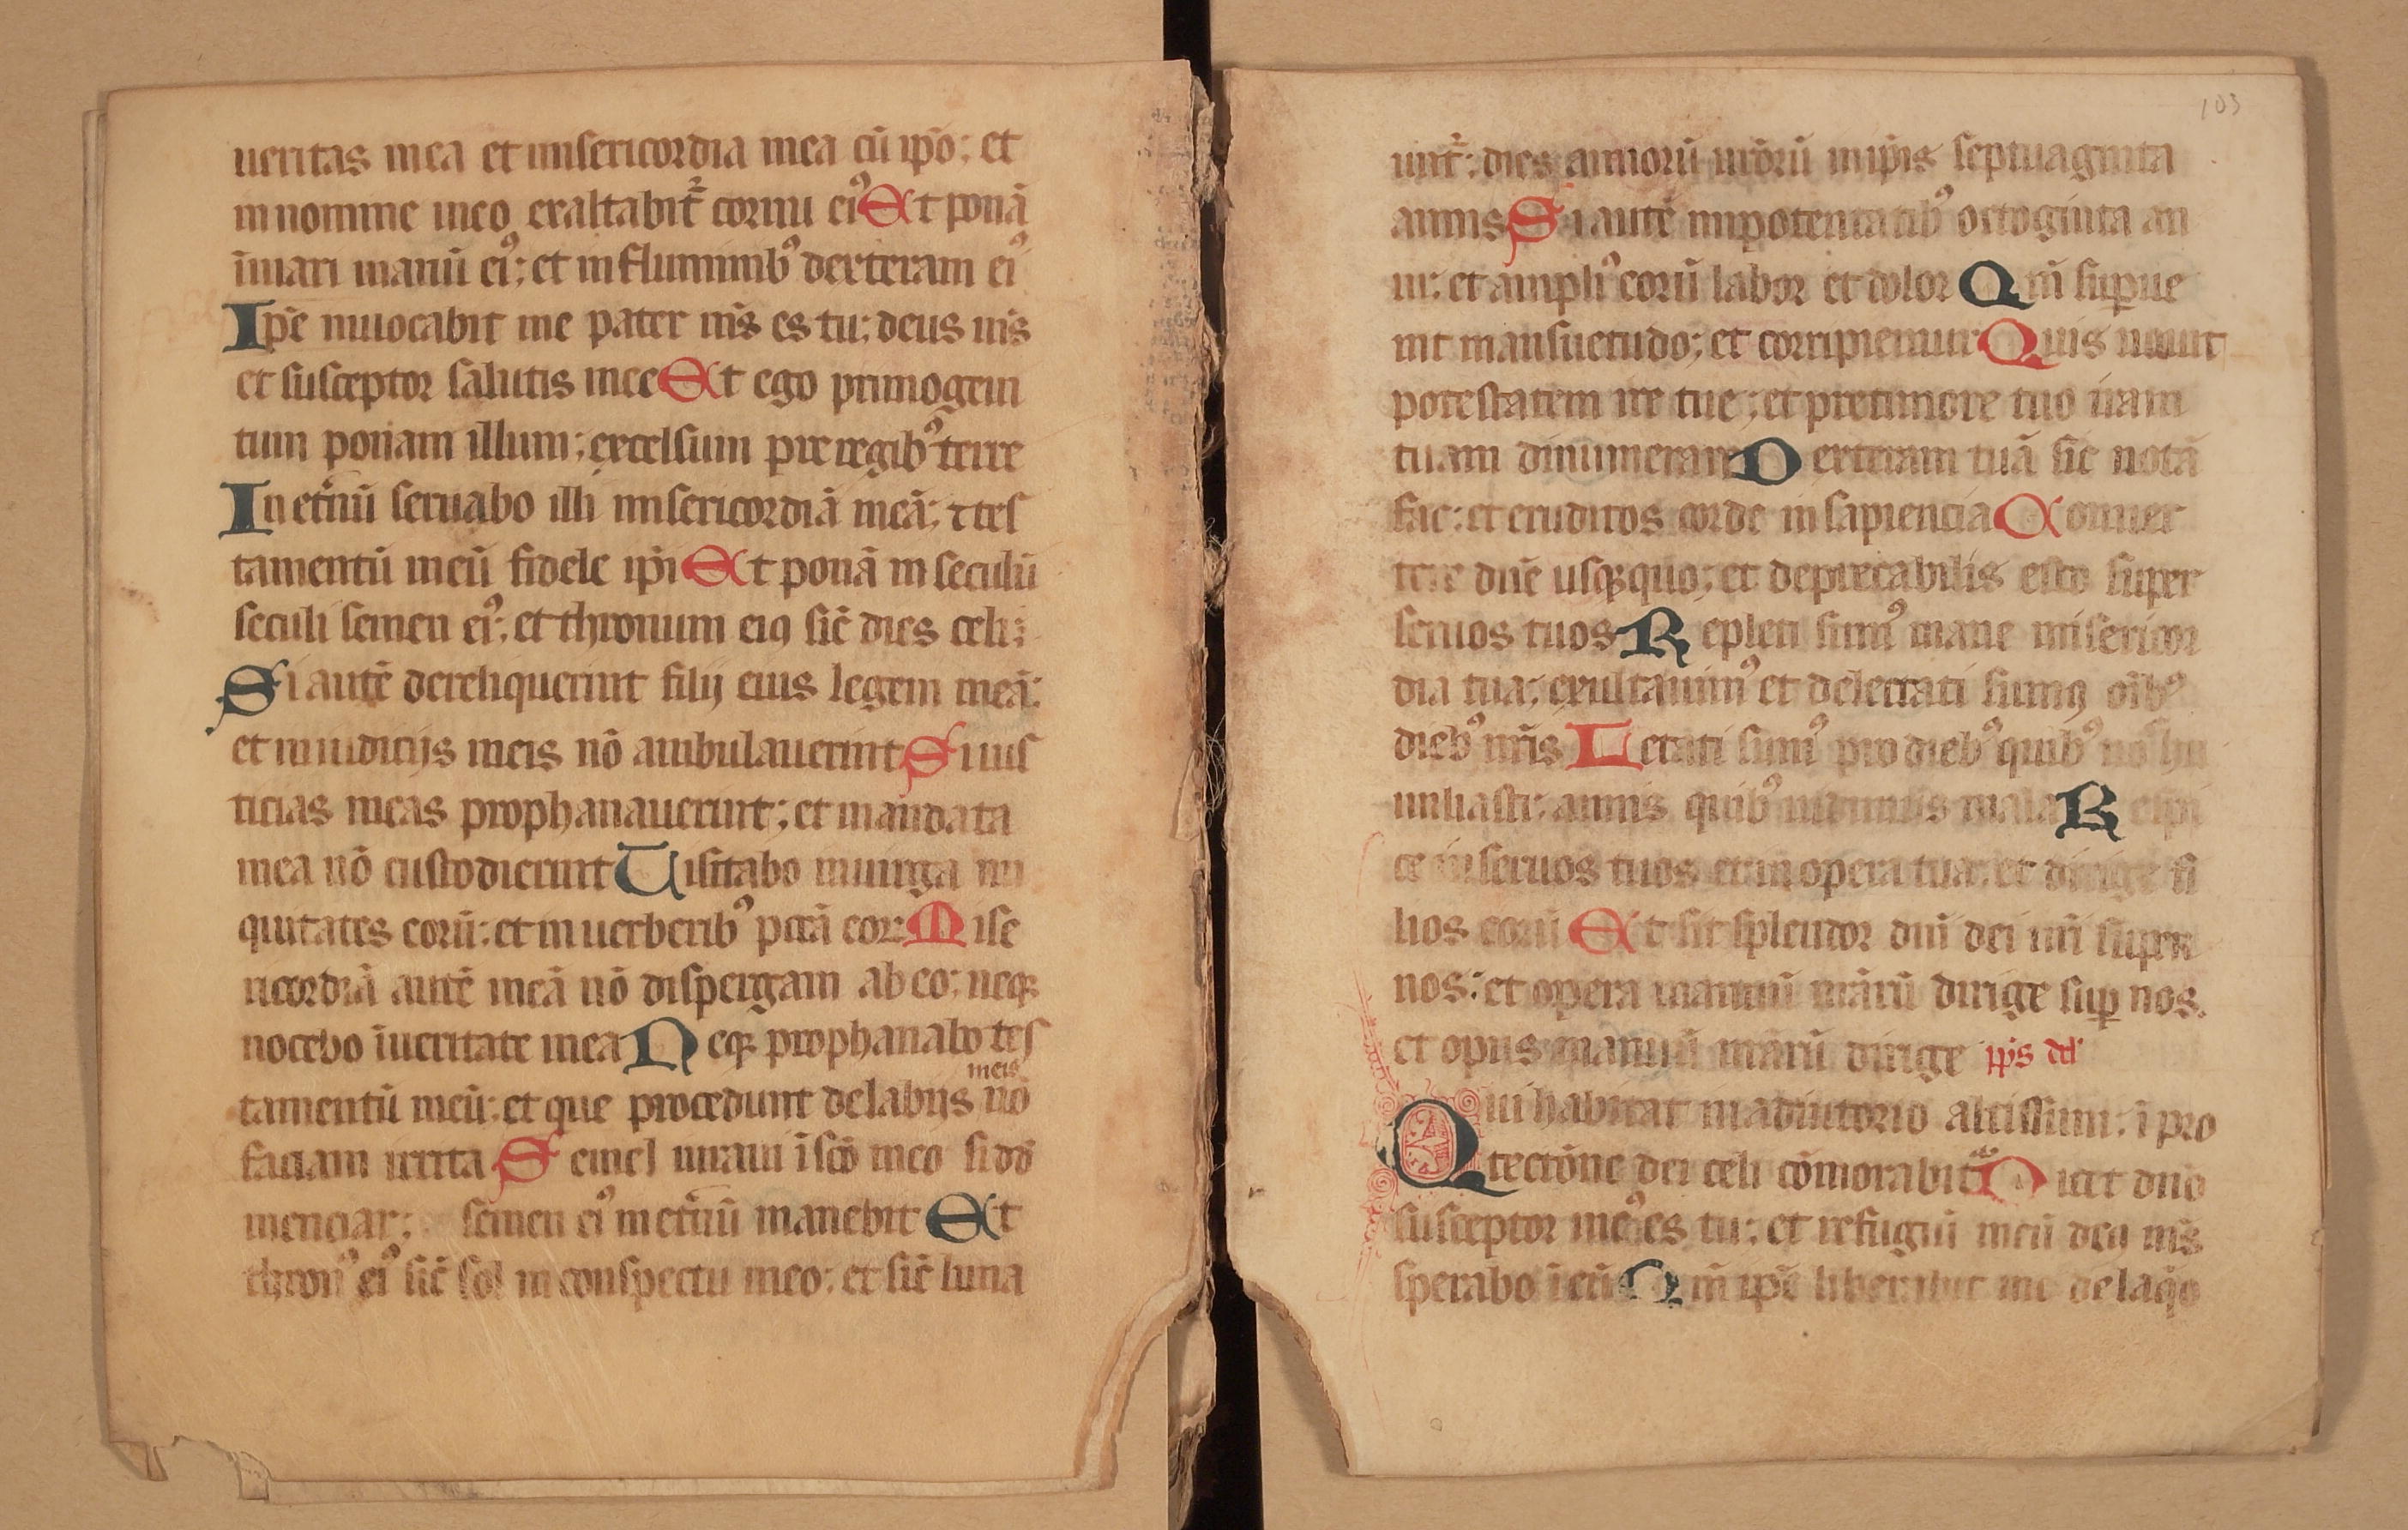 ueritas mea et misericordia mea cū ip̄o; et
in nomine meo exaltabit᷑ cornu ei⁹ Et ponā
ī mari manū ei⁹; et in fluminib⁹ dexteram ei⁹
Ip̄e inuocabit me pater m̄s es tu; deus m̄s
et susceptor salutis mee Et ego primogeni
tum ponam illum; excelsum pre regib⁹ terre
In et̄nū seruabo illi misericordiā meā; ⁊ tes
tamentū meū fidele ip̄i Et ponā in seculū
seculi semen ei⁹; et thronum eiꝯ sic̄ dies celi;
Si autē dereliquerint filij eius legem meā;
et in iudicijs meis nō ambulauerint Si ius
ticias meas prophanauerint; et mandata
mea nō custodierint Uisitabo in uirga ini
quitates eorū; et in uerberib⁹ pccā eor; Mise
ricordiā autē meā nō dispergam ab eo; neqꝫ
nocebo ī ueritate mea Neqꝫ prophanabo tes
meis
tamentū meū; et que procedunt de labijs nō
faciam irrita Semel iuraui ī sc̄o meo si dd̄
menciar; semen ei⁹ in et̄nū manebit Et
thron⁹ ei⁹ sic̄ sol in conspectu meo; et sic̄ luna
103
unt᷑; dies annorū nr̄orū in ip̄is septuaginta
annis Si autē in potentatib⁹ octoginta an
ni; et ampli⁹ eorū labor et dolor Qm̄ suꝑue
nit mansuetudo; et corripiemur Quis nouit
potestatem ire tue; et pre timore tuo iram
tuam dinumerare Dexteram tuā sic notā
fac; et eruditos corde in sapiencia Conuer
tere dn̄e usqꝫ quo; et deprecabilis esto super
seruos tuos Repleti sum⁹ mane misericor
dia tua; exultauim⁹ et delectati sumꝯ oīb⁹
dieb⁹ nr̄is Letati sum⁹ pro dieb⁹ quib⁹ nos hu
miliasti; annis quib⁹ uidimus mala Respi
ce in seruos tuos et in opera tua; et dirige fi
lios eorū Et sit splendor dn̄i dei nr̄i super
nos; et opera manuū nr̄arū dirige suꝑ nos.
et opus manuū nr̄arū dirige
Qui habitat in adiutorio altissimi; ī pro
tectōne dei celi cōmorabit᷑ Dicet dn̄o
susceptor me⁹ es tu; et refugiū meū deꝯ m̄s
sperabo ī eū Qm̄ ip̄e liberabit me de laq̄o